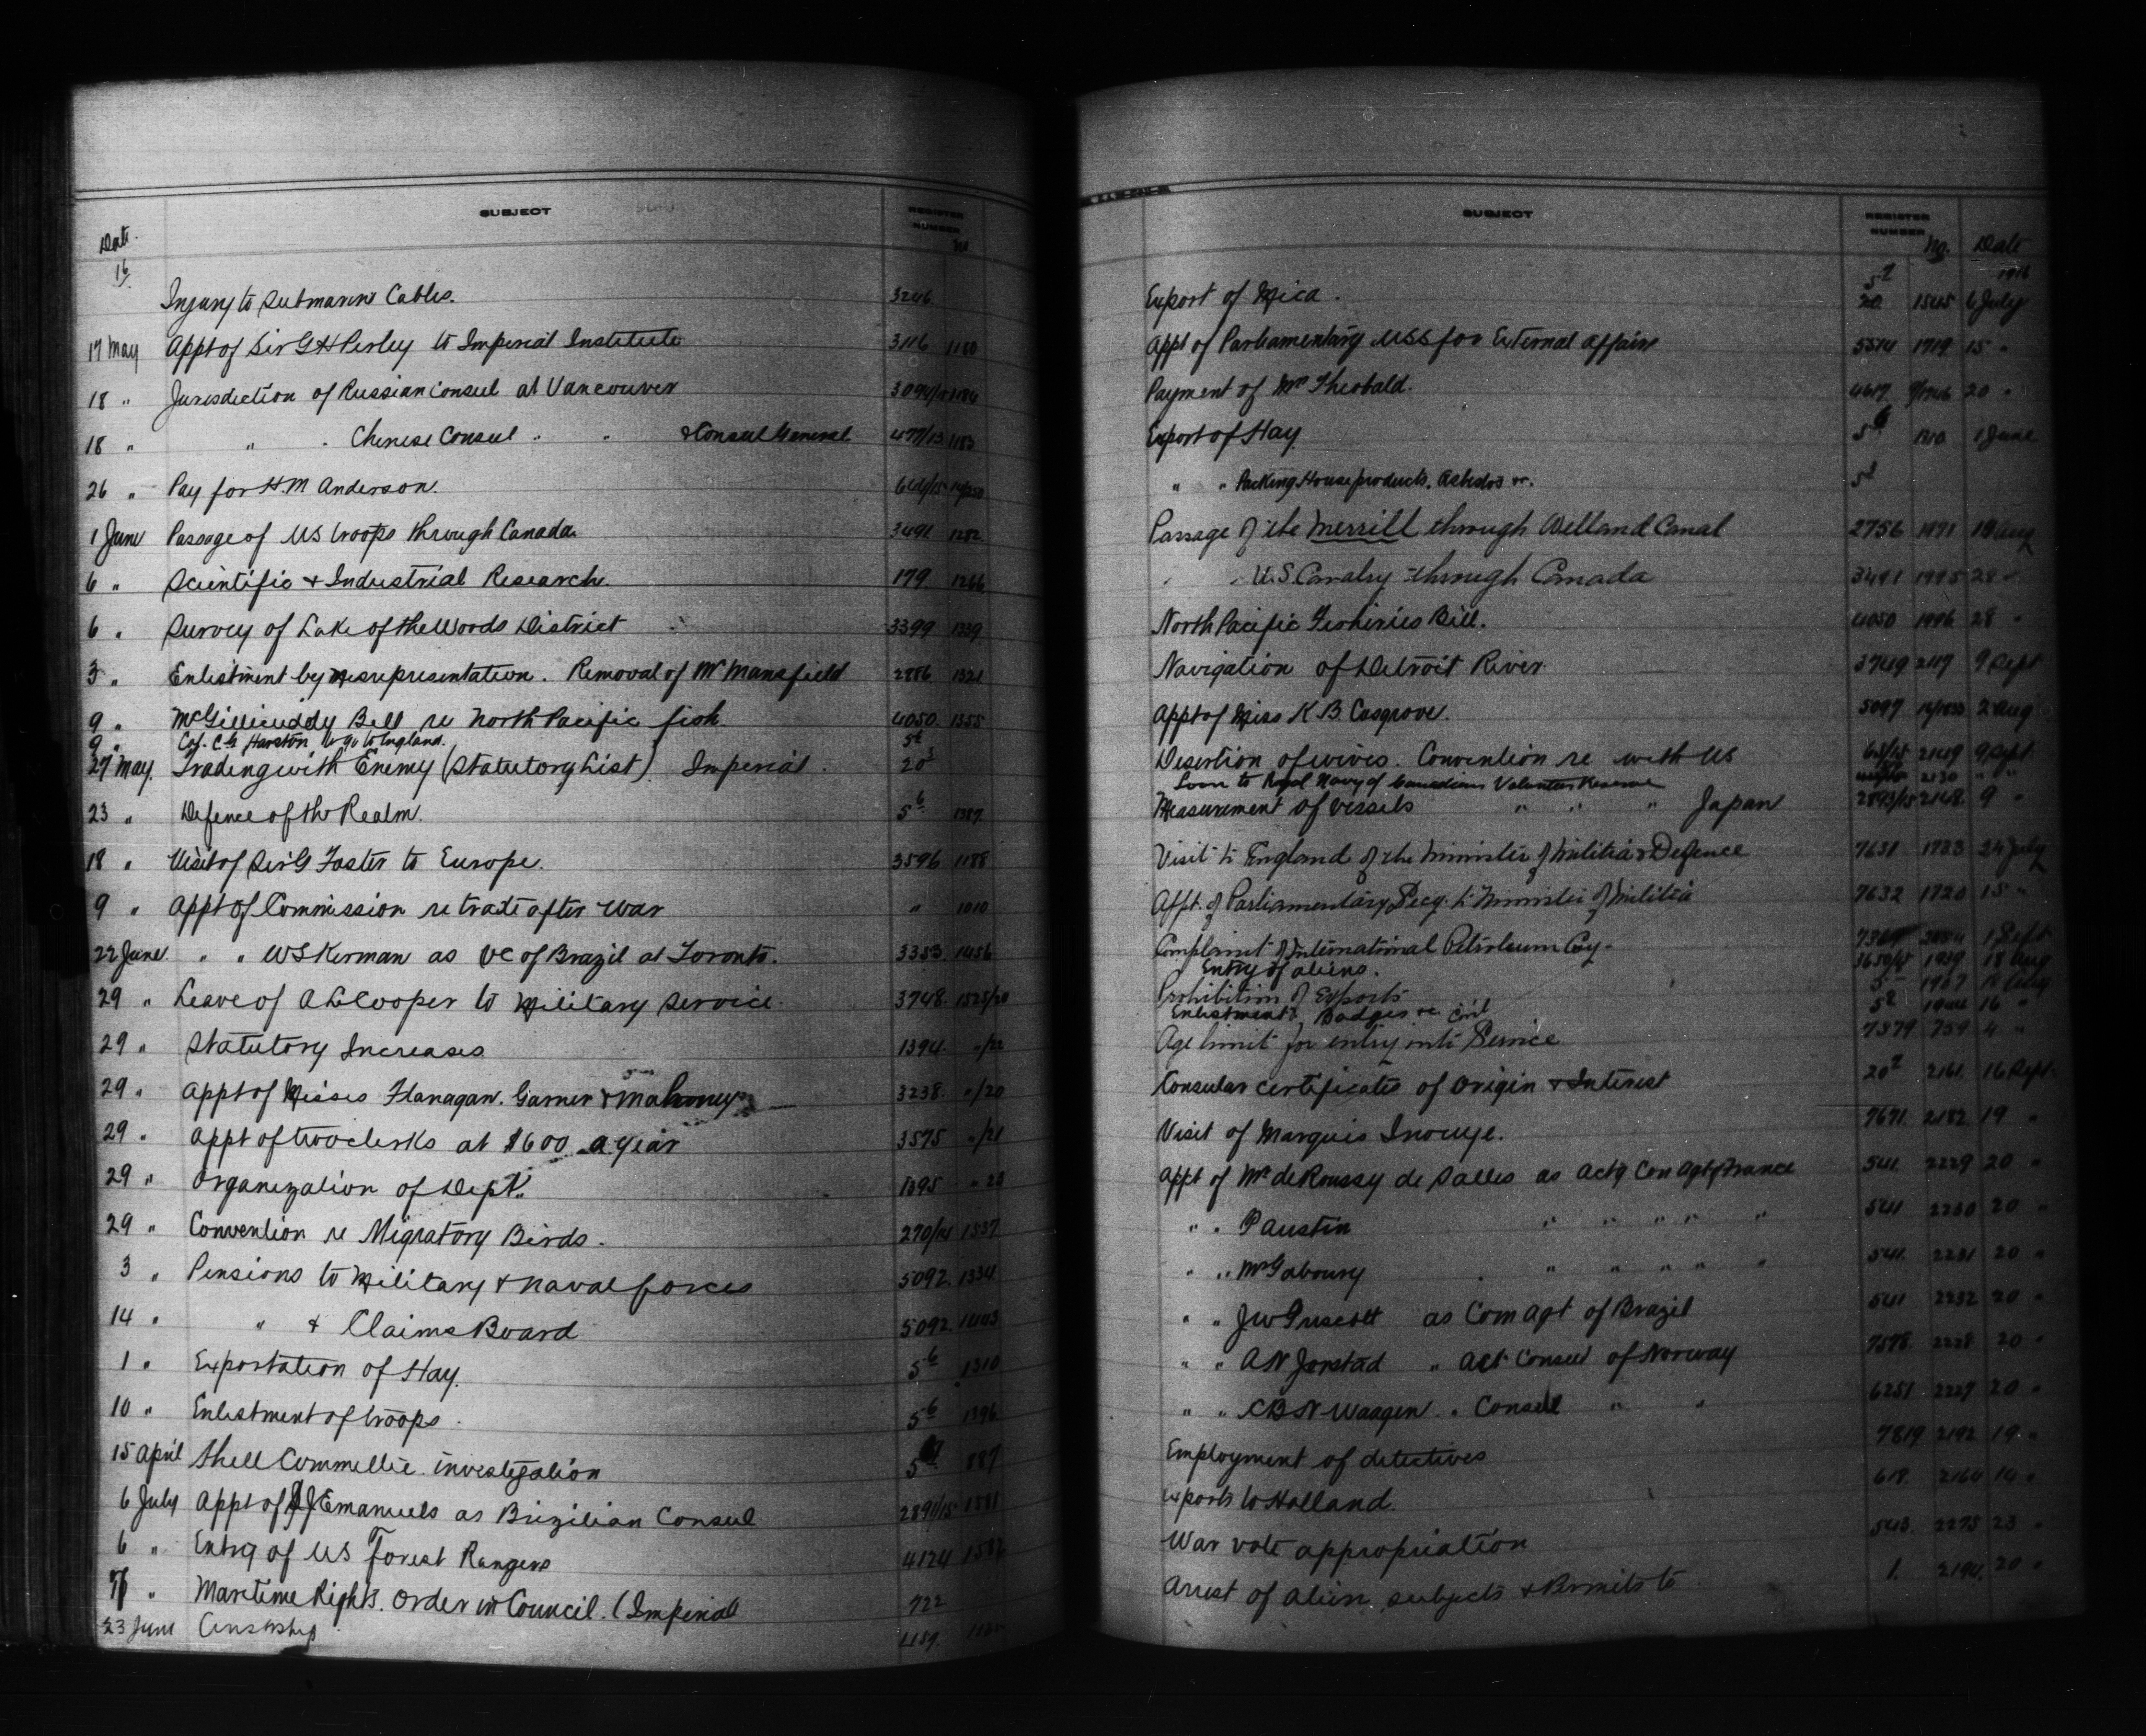 SUBJECT REGISTER NUMBER No
Date
16
Injury to Submarine Cables. 3246.
17 May Appt of Sir G H Perley to Imperial Institute 3116 1180
18 " Jurisdiction of Russian Consul at Vancouver 3094/15 1184
18 " " " Chinese Consul " " & Consul General 477/13 1183
26 " Pay for H.M Anderson.
1 June Passage of US troops through Canada 3491 1282
6 " Scientific & Industrial Research. 179 1266
6 " Survey of Lake of the Woods District 3399 1339
3 " Enlistment by misrepresentation. Removal of Mr Mansfield 2986 1321
9 " McGillicuddy Bill re North Pacific fish 4050. 1355
9 " Harston to go to England. 5
27 May. Trading with Enemy (Statutory List) Imperial. 20³
23 " Defence of the Realm. 5⁶ 1387
18 " Visit of Sir G Foster to Europe. 3596 1188
9 " Appt of Commission re trade after war " 1010
22 June. " " W S Kerman as VC of Brazil at Toronto. 3353 1456
29 " Leave of A L Cooper to Military Service. 3748. 1525/20
29 " Statutory Increases 1394. "/22
29 " Appt of Misses Flanagan. Garner & Mahoney 3238. "/20
29 " Appt of two clerks at $600 a year 3575 "/21
29 " Organization of Dept. 1395 " 23
29 " Convention re Migratory Birds. 270/14 1537
3 " Pensions to Military & Naval forces 5092. 1334
14 " " & Claims Board 5092. 1403
1 " Exportation of Hay. 5⁶ 1310
10 " Enlistment of troops. 5⁶ 1396
15 April Shell Committee investigation 5 887
6 July Appt of J Emanuels as Brizilian Consul 2891/15 1581
6 " Entry of US Forest Rangers 4124
" Maritime Rights. Order in Council. (Imperial 722
23 June Censorship 4159.
SUBJECT REGISTER NUMBER No. Date
1916
Export of Mica. 20 1545 6 July
Appt of Parliamentary USS for External Affairs 5514 1719 15 "
Payment of Mr Theobald. 4617 20 "
Export of Hay. 5⁶ 1310 1 June
" " Packing House products. Asbestos &c. 5³
Passage of the Merrill through Welland Canal 2756 1971 Aug
" " U.S. Cavalry through Canada 3491 1995 28 "
North Pacific Fisheries Bill. 4050 1996 28 "
Navigation of Detroit River. 3749 2117 9 Sept
Appt of Miss K. B. Cosgrove. 5097 2 Aug
Desertion of wives. Convention re with US 2149 9 Sept.
Loan to Royal Navy of Canadian Volunteer Reserve 2130 " "
Measurement of vessels " " " Japan 2893/15 2148. 9 "
Visit to England of the Minister of Militia & Defence 7631 1783 24 July
Appt. of Parliamentary Secy. to Minister of Militia 7632 1720 15 "
Complaint of International Petroleum Coy. 1 Sept
Entry of aliens. 3650/15 1959 18 Aug
Prohibition of Exports 5 1967
Enlistment, Badges &c. 5² 1944 16 "
Age limit for entry into Civil Service 7379 759 4 "
Consular certificates of Origin & Interest 20² 2161. 16 Sept.
Visit of Marquis Inouye. 7671. 2182 19 "
Appt of Mr de Roussy de Salles as Actg Con Agt of France 541. 2229 20 "
" " P Austin " " " " " 541 2230 20 "
" " Mr Gaboury " " " " " 541. 2231 20 "
" " J W Truscott as Com Agt of Brazil 541 2232 20 "
" " A N Jorstad " Act Consul of Norway 7578. 2228 20 "
" " C B N Waagen " Consul " " 6251 2227 20 "
Employment of detectives 7819 2192 19 "
Exports to Holland. 618. 2164 14 "
War vote appropriation 543. 2275 23 "
Arrest of alien subjects & Permits to 1. 2194. 20 "